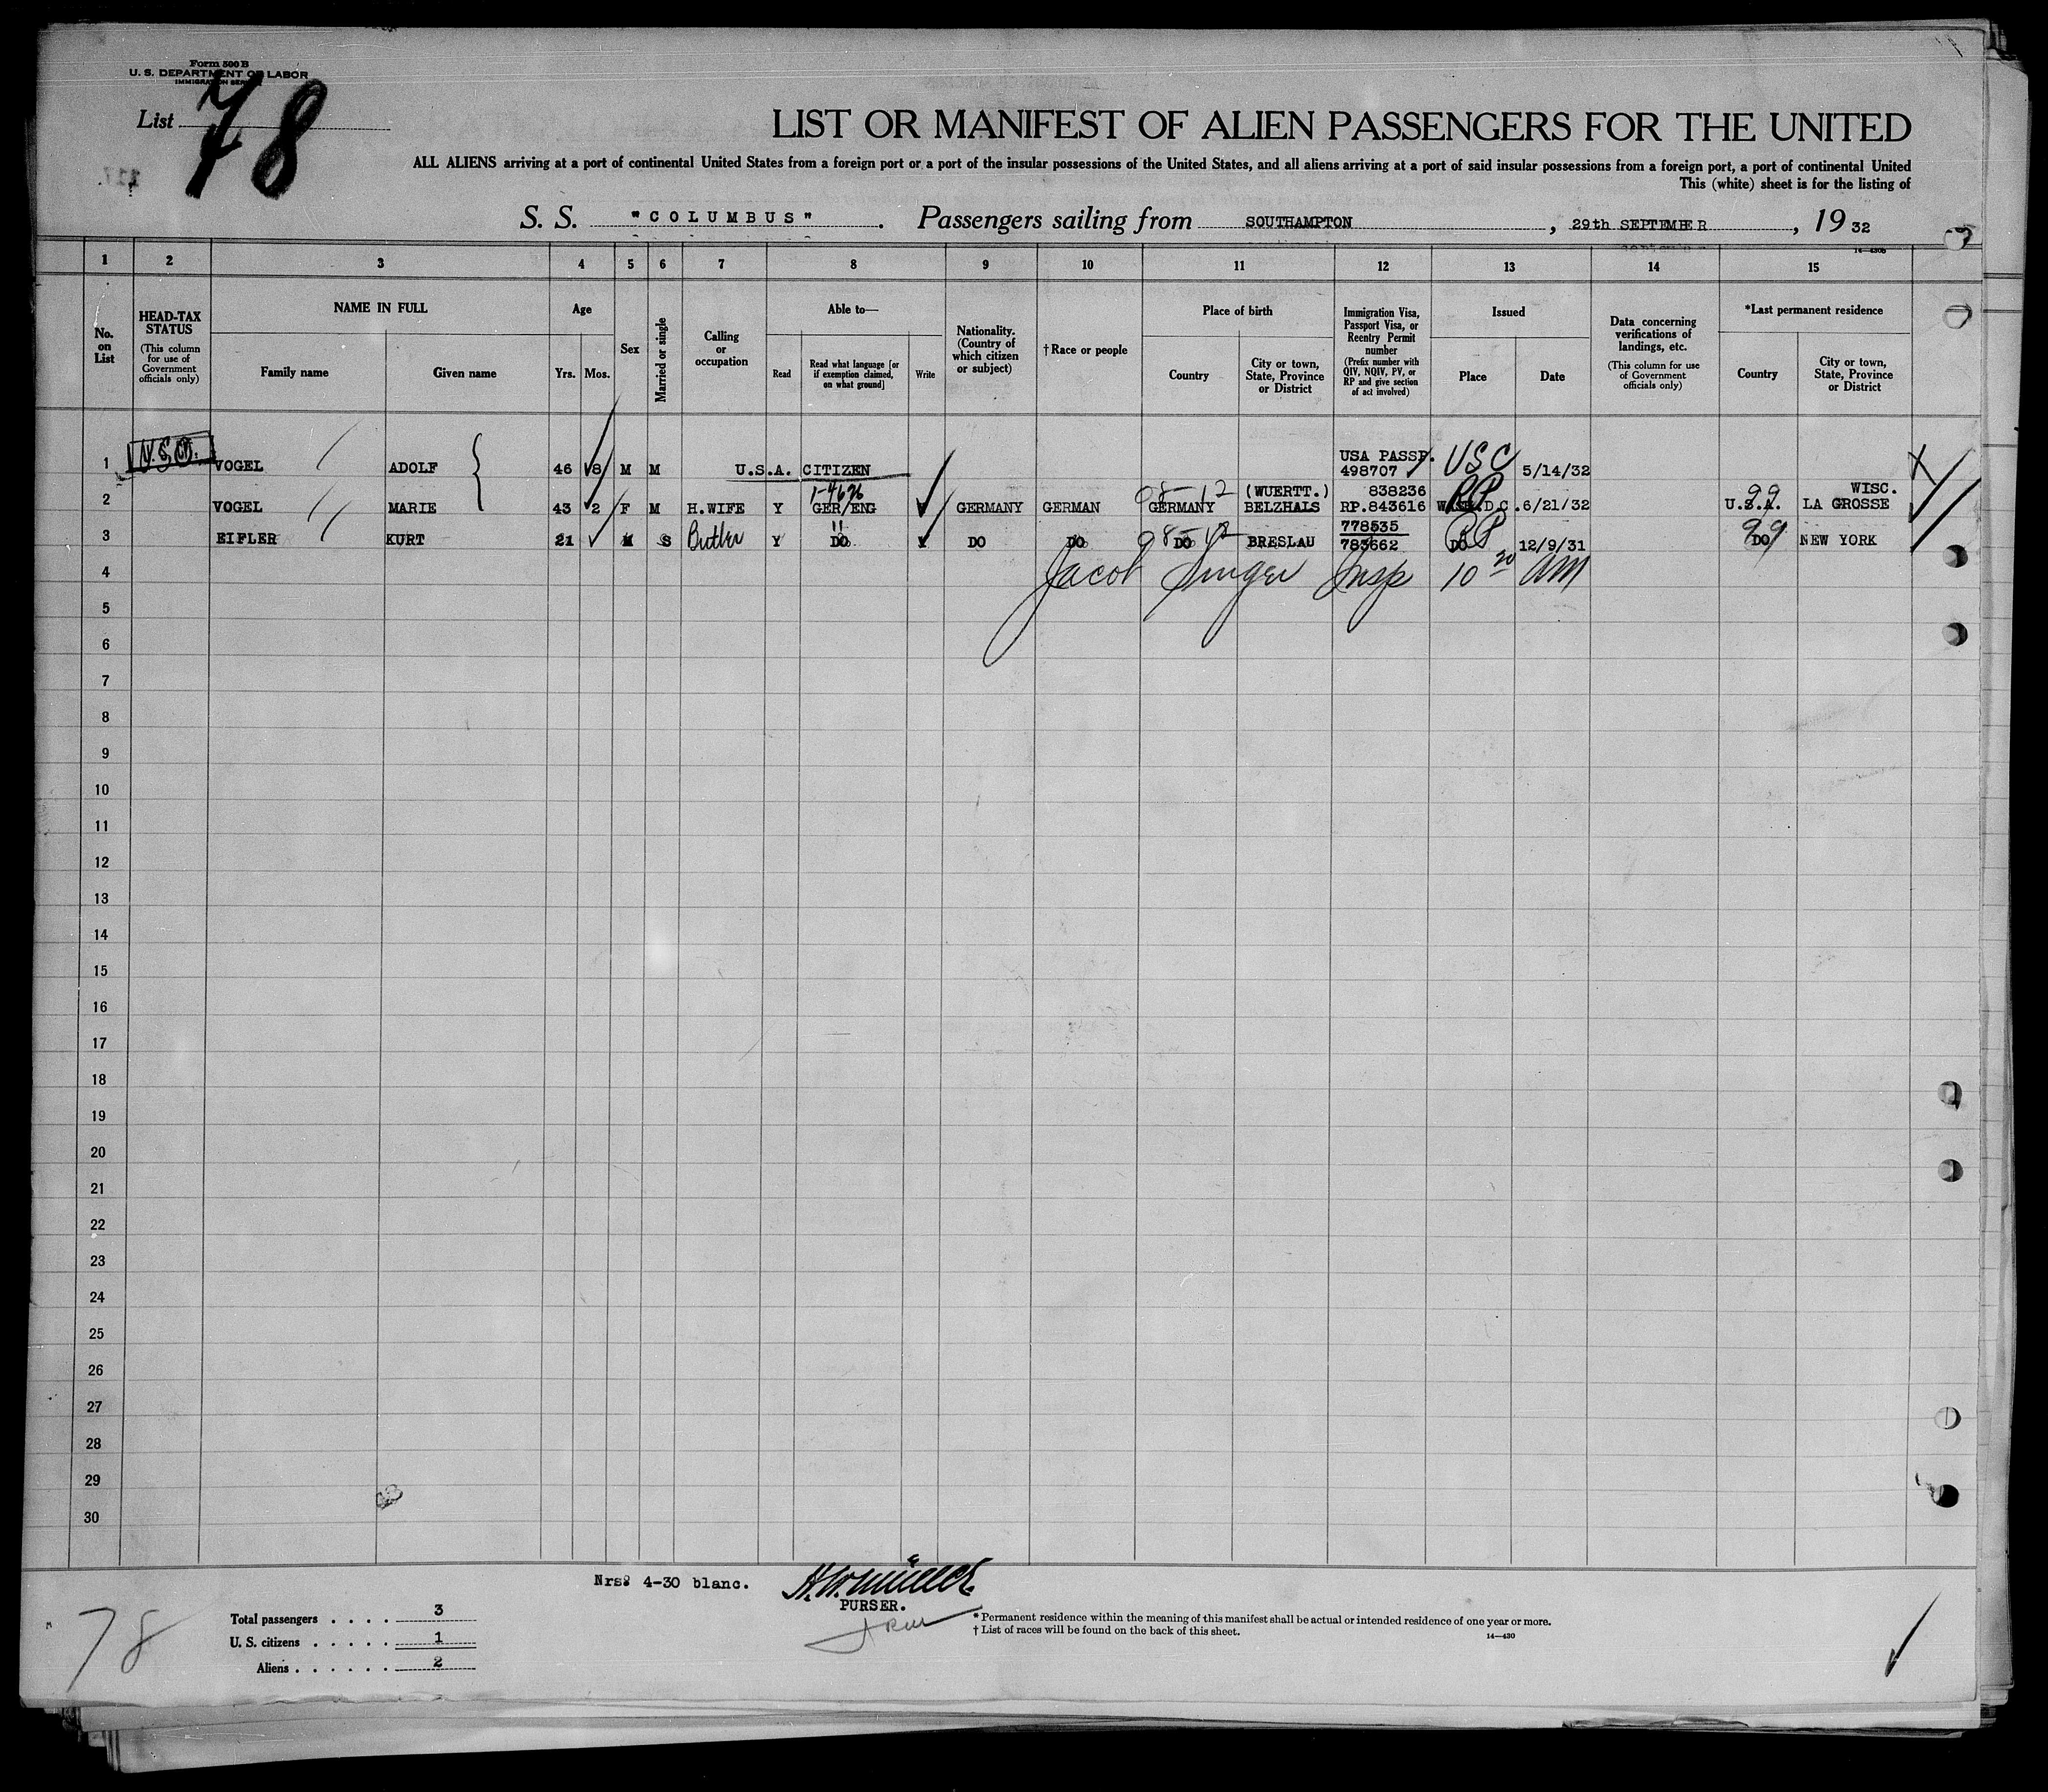 Form 500 B
U. S. DEPARTMENT OF LABOR
IMMIGRATION SERVICE
List 78
LIST OR MANIFEST OF ALIEN PASSENGERS FOR THE UNITED
ALL ALIENS arriving at a port of continental United States from a foreign port or a port of the insular possessions of the United States, and all aliens arriving at a port of said insular possessions from a foreign port, a port of continental United
This (white) sheet is for the listing of
S. S. "COLUMBUS". Passengers sailing from SOUTHAMPTON, 29th SEPTEMBER, 19 32
14—430b
1 2 3 4 5 6 7 8 9 10 11 12 13 14 15
No. on List
HEAD-TAX STATUS (This column for use of Government officials only)
NAME IN FULL
Family name
Given name
Age
Yrs. Mos.
Sex
Married or single
Calling or occupation
Able to—
Read
Read what language [or if exemption claimed, on what ground]
Write
Nationality. (Country of which citizen or subject)
† Race or people
Place of birth
Country
City or town, State, Province or District
Immigration Visa, Passport Visa, or Reentry Permit number (Prefix number with QIV, NQIV, PV, or RP and give section of act involved)
Issued
Place
Date
Data concerning verifications of landings, etc. (This column for use of Government officials only)
*Last permanent residence
Country
City or town, State, Province or District
1 VOGEL ADOLF 46 8 M M U.S.A. CITIZEN USA PASSP. 498707 USC 5/14/32
2 VOGEL MARIE 43 2 F M H.WIFE Y GER/ENG GERMANY GERMAN GERMANY (WUERTT.) BELZHALS 838236 RP.843616 RP WASH.D.C. 6/21/32 99 U.S.A. WISC. LA GROSSE
3 EIFLER KURT 21 M S Butler Y DO Y DO DO DO BRESLAU 778535 783662 RP DO 12/9/31 99 DO NEW YORK
4 Jacob Singer Insp 10 20 AM
5
6
7
8
9
10
11
12
13
14
15
16
17
18
19
20
21
22
23
24
25
26
27
28
29
30
Nrs: 4-30 blanc.
PURSER.
78
Total passengers . . . . 3
U. S. citizens . . . . . 1
Aliens . . . . . . 2
* Permanent residence within the meaning of this manifest shall be actual or intended residence of one year or more.
† List of races will be found on the back of this sheet.
14—430